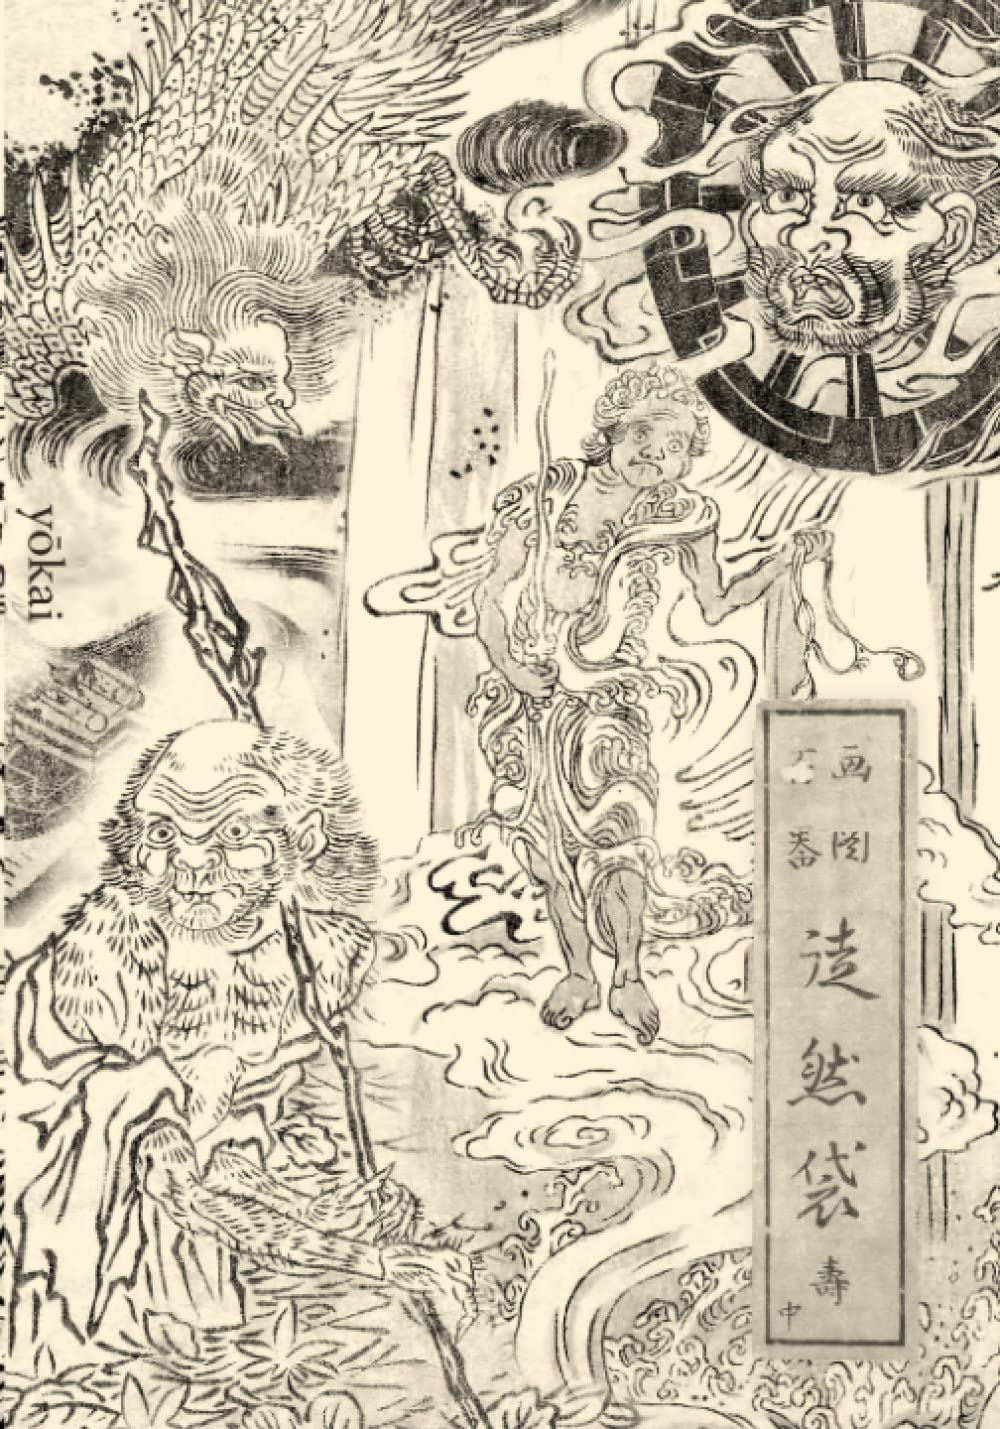 yōkai
画図
徒然袋
壽
中